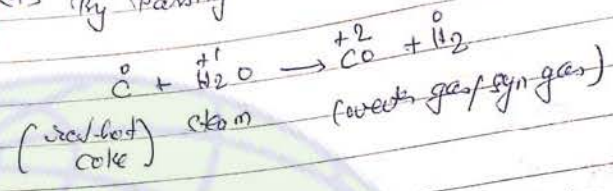 By Passing
0 +1 +2 0
C + H2O → CO + H2
(red-hot coke) steam (water gas/syn gas)